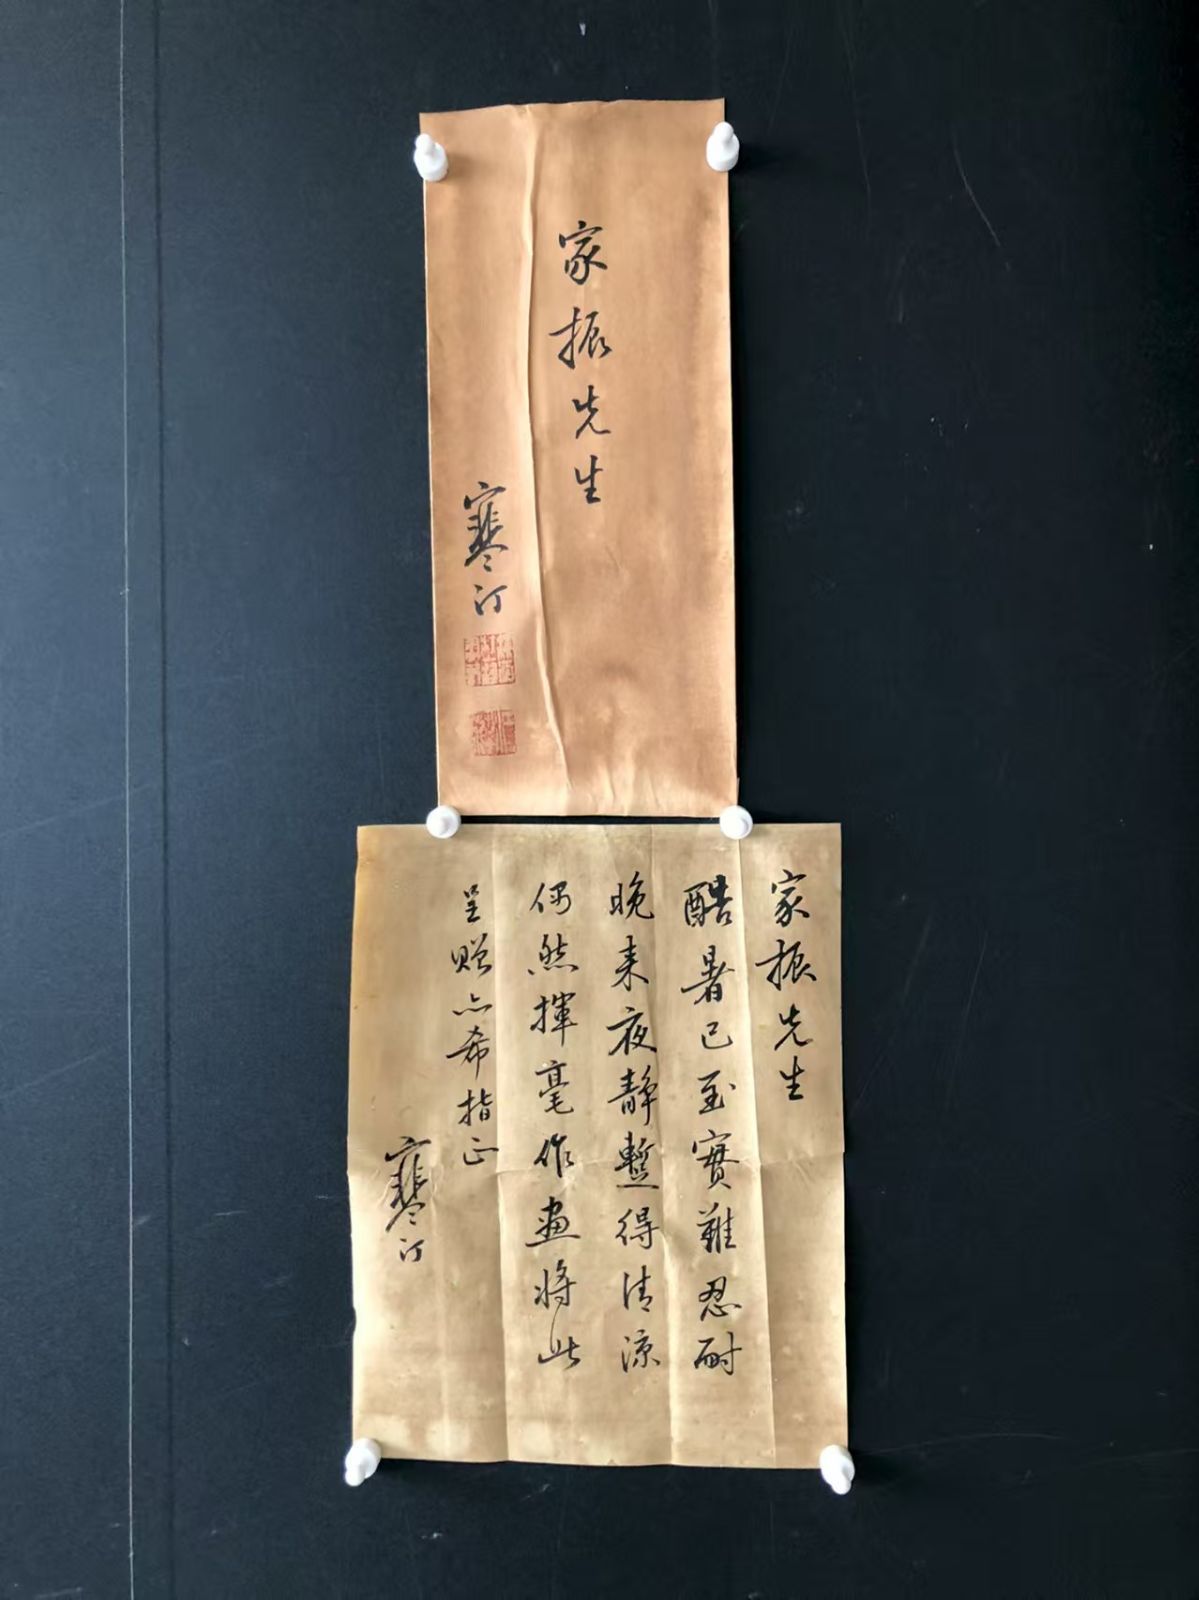 家振先生
寒汀
家振先生
酷暑已至實難忍耐
晚来夜靜暫得清涼
偶然揮毫作畫將此
呈贈亦希指正
寒汀